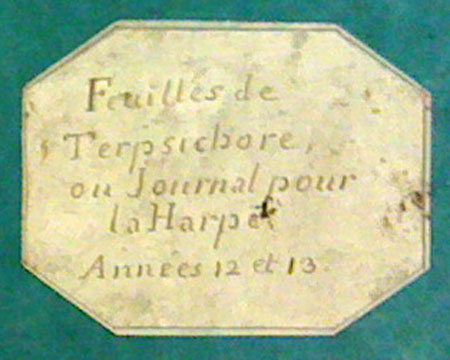 Feuilles de
Terpsichore,
ou Journal pour
la Harpe.
Années 12 et 13.